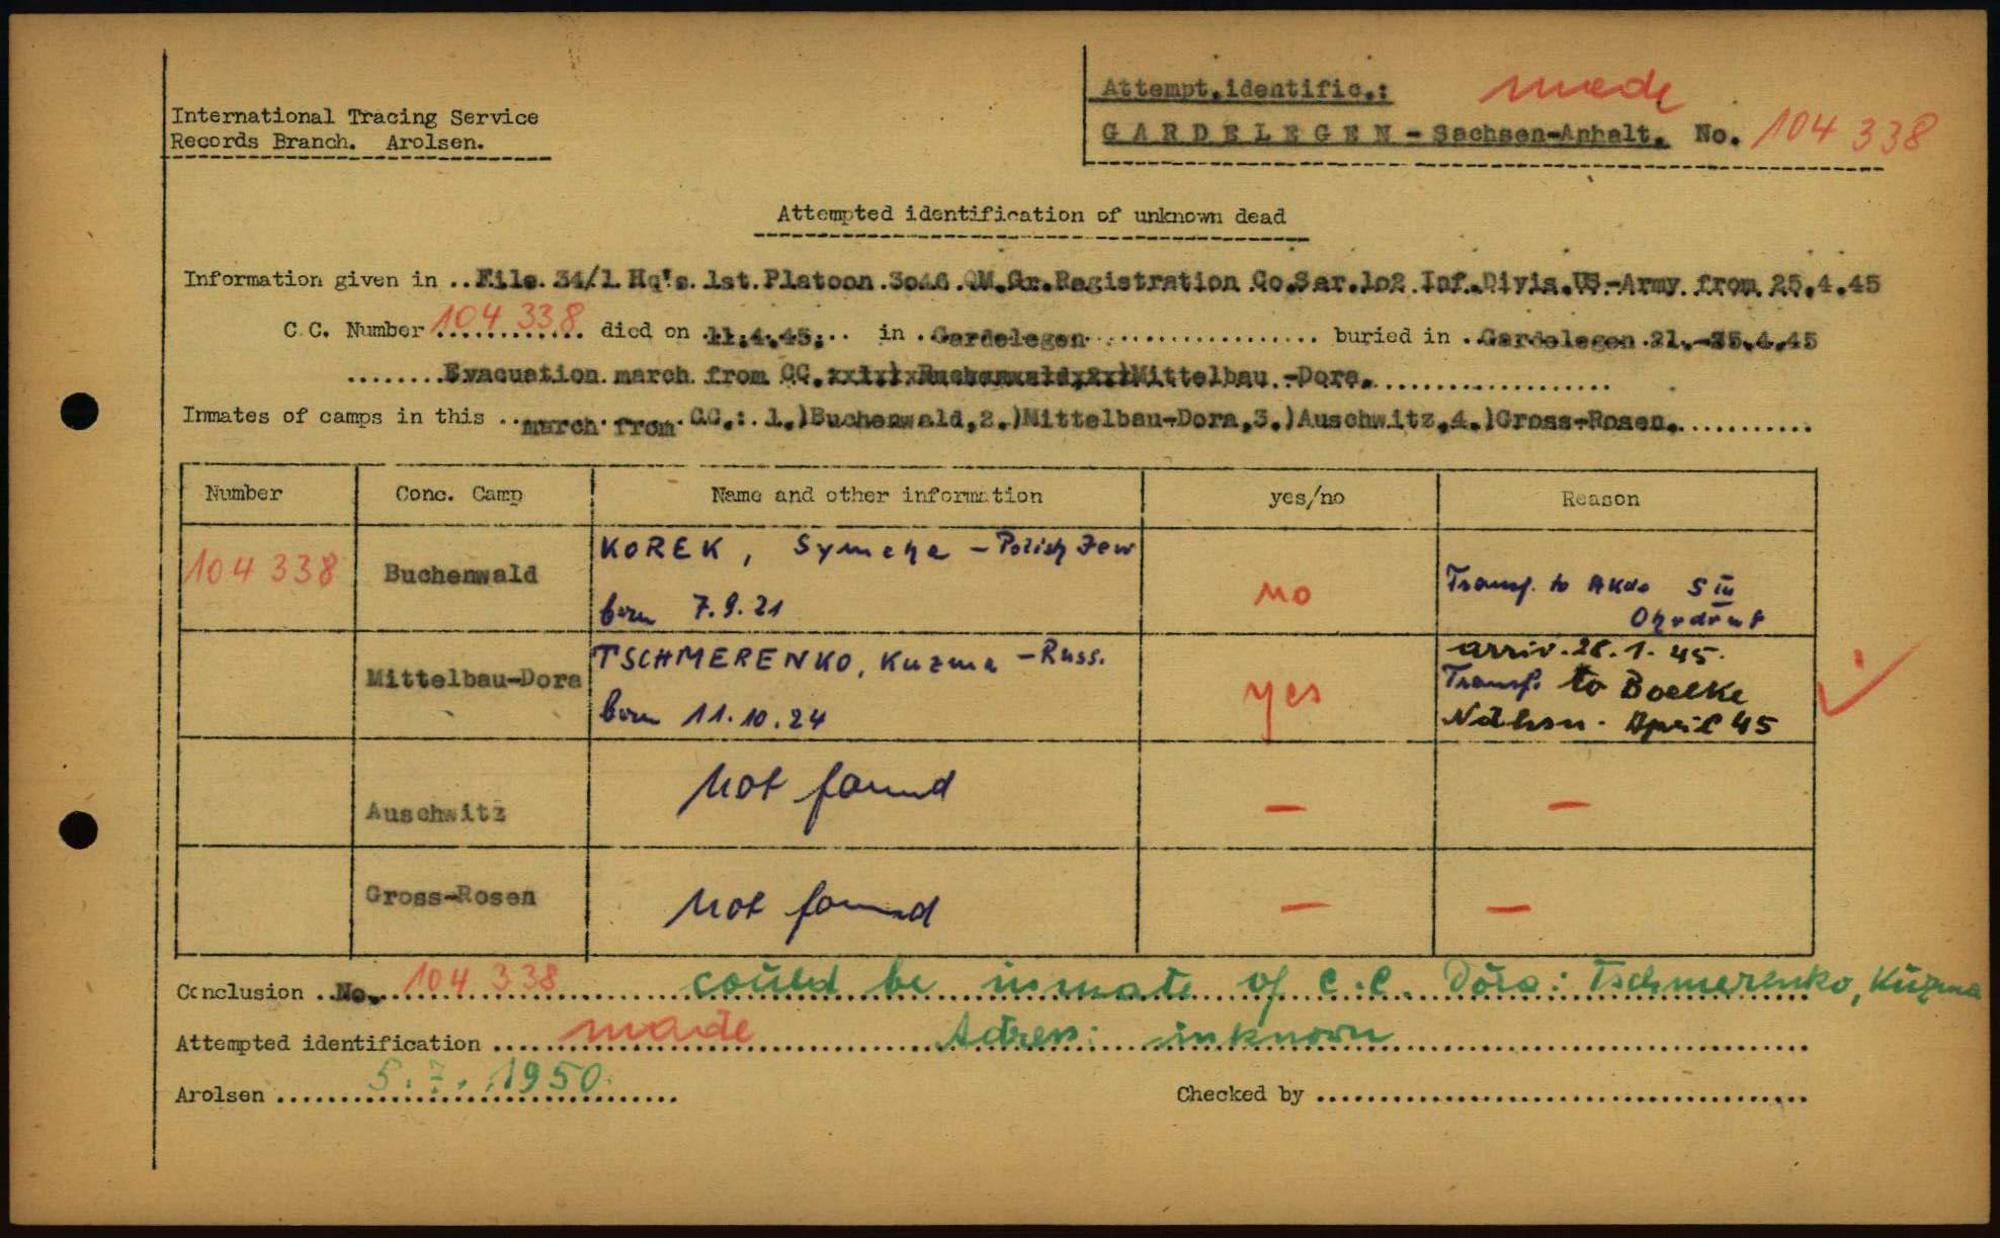 Attempt.identific.: made
International Tracing Service
Records Branch. Arolsen.
GARDELEGEN - Sachsen-Anhalt. No. 104 338
Attempted identification of unknown dead
Information given in ..File.34/1.Hq's.1st.Platoon.3046.QM.Gr.Registration.Co.Ser.1o2.Inf.Divis.US.-Army.from.25.4.45
C.C. Number 104 338 died on .11.4.45... in .Gardelegen.................... buried in .Gardelegen.21.-25.4.45
........Evacuation.march.from CC. Mittelbau.-Dora...................
Inmates of camps in this ..march.from.CC.:.1.)Buchenwald,2.)Mittelbau-Dora,3.)Auschwitz,4.)Gross-Rosen............
Number Conc. Camp Name and other information yes/no Reason
104 338 Buchenwald KOREK, Symcha - Polish Jew
born 7.9.21 no Transf. to AKdo S III
Ohrdruf
Mittelbau-Dora TSCHMERENKO, Kuzma - Russ.
born 11.10.24 yes arriv. 28.1.45.
Transf. to Boelke
April 45
Auschwitz not found — —
Gross-Rosen not found — —
Conclusion ..No. 104 338 could be inmate of C.C. Dora: Tschmerenko, Kuzma
Attempted identification made Adress: unknown
Arolsen 5.7.1950. Checked by ......................................